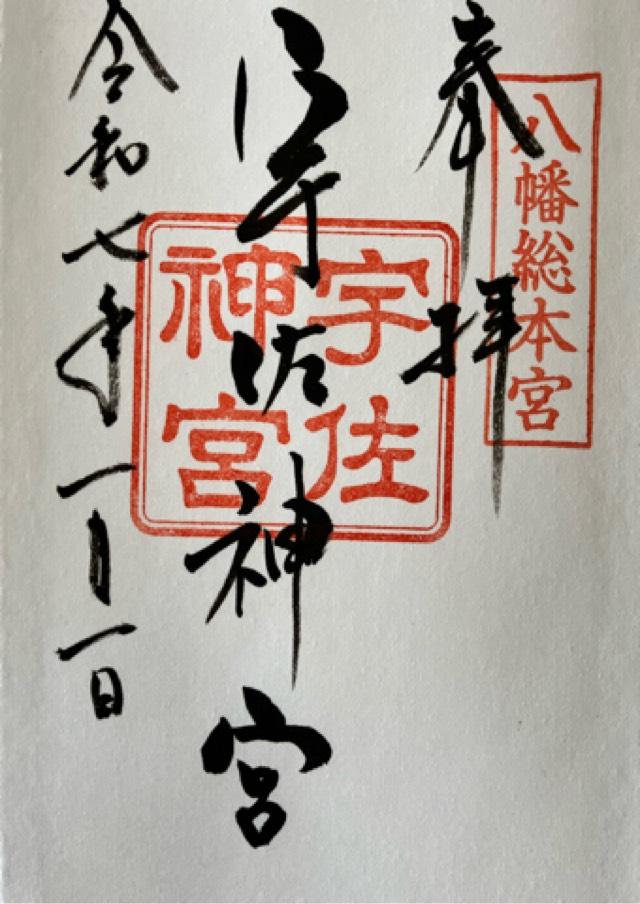 八幡総本宮
奉拝
宇佐神宮
宇佐神宮
令和七年一月一日